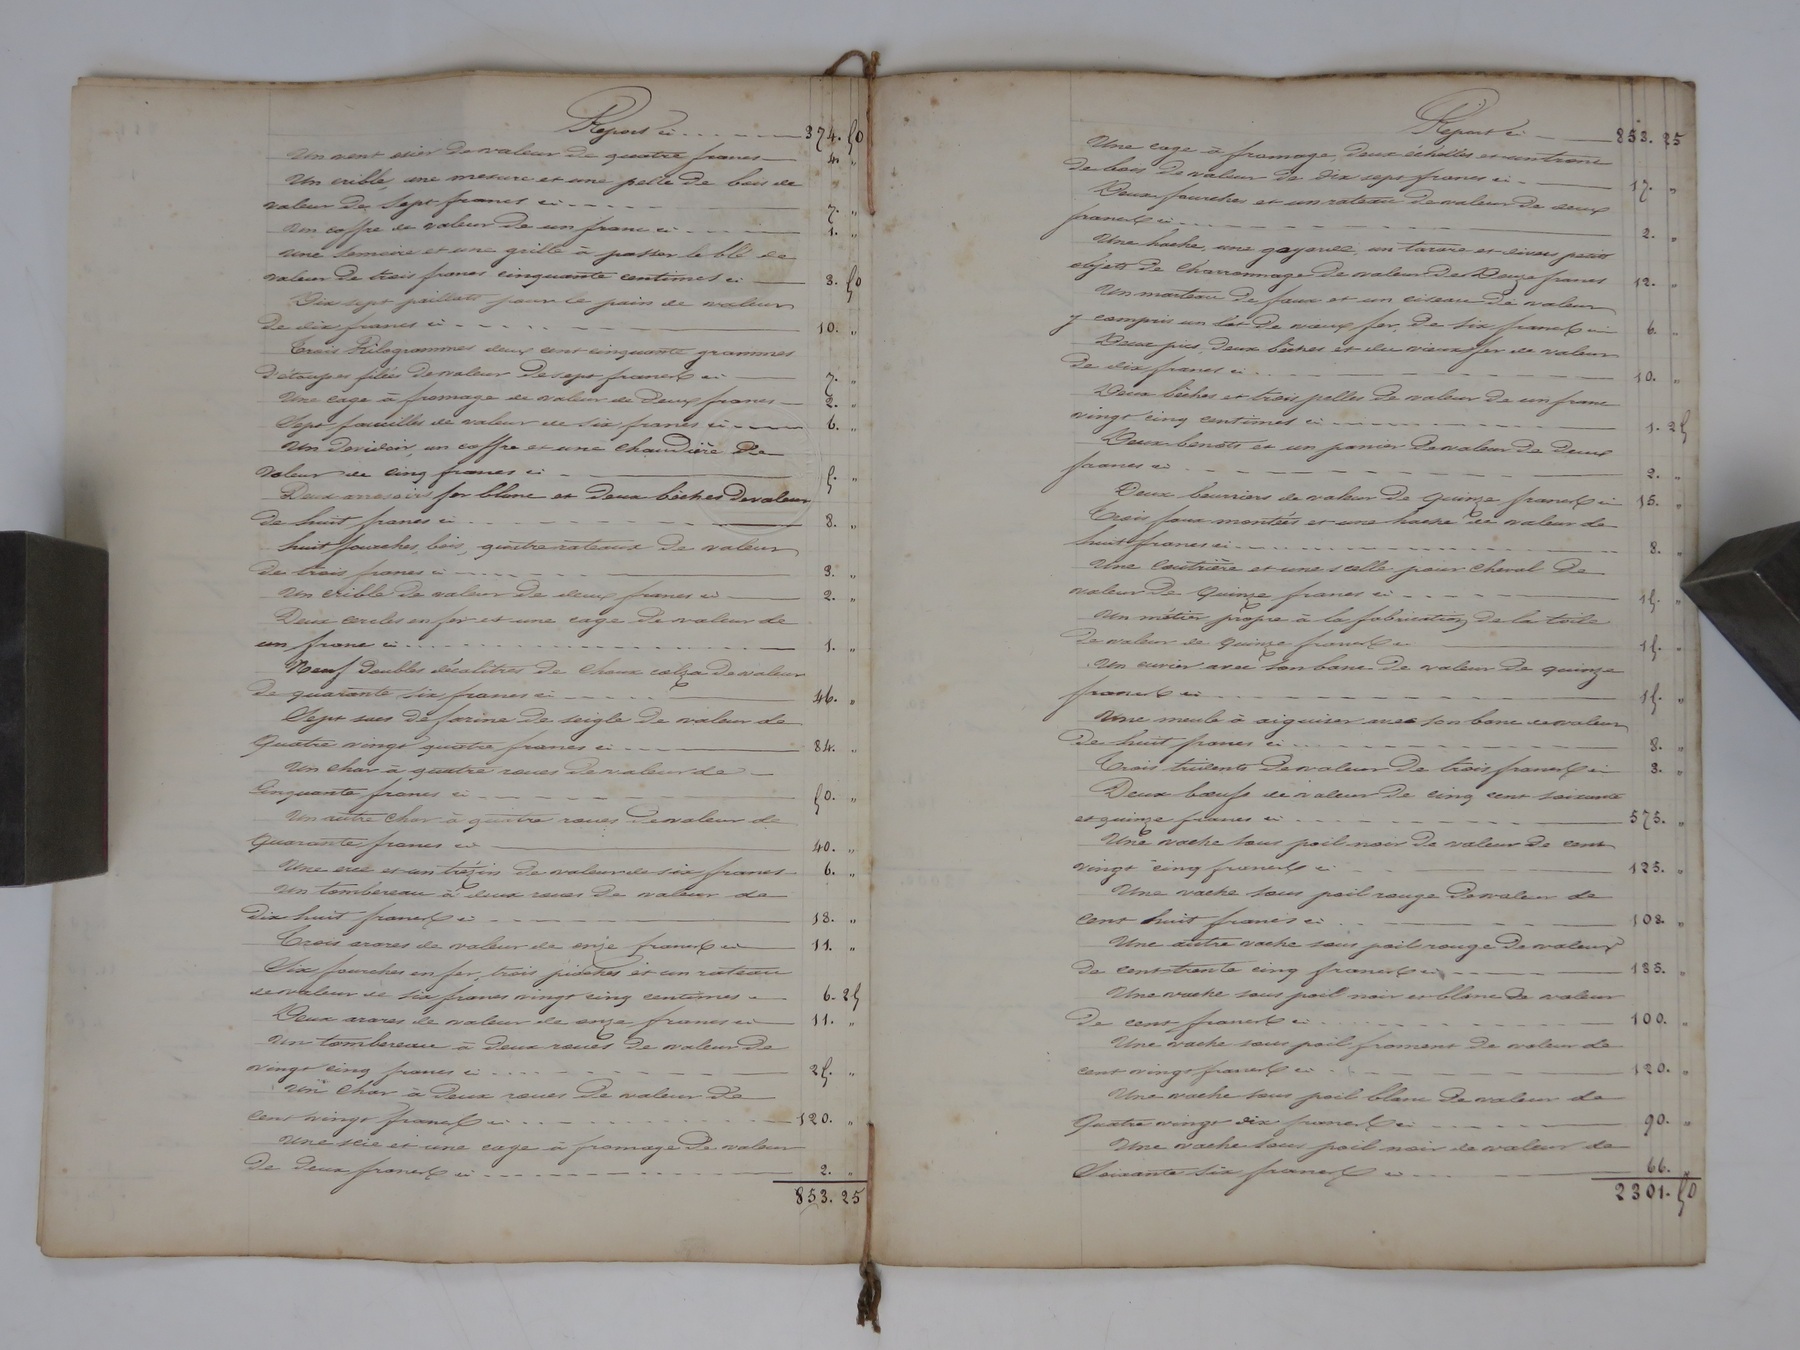 Report ci 374. 50
Un vent esier de valeur de quatre francs 4. "
Un crible, une mesure et une pelle de bois de
valeur de sept francs ci 7. "
Un coffre de valeur de un franc ci 1. "
Une semoire et une grille à passer le blé de
valeur de trois francs cinquante centimes ci 3. 50
Dix sept paillats pour le pain de valeur
de dix francs ci 10. "
Trois Kilogrammes deux cent cinquante grammes
d'étoupes filées de valeur de sept francs ci 7. "
Une cage à fromage de valeur de deux francs 2. "
Sept faucilles de valeur de six francs ci 6. "
Un devidoir, un coffre et une chaudière de
valeur de cinq francs ci 5. "
Deux arrosoirs fer blanc et deux bèches de valeur
de huit francs ci 8. "
huit fourches, bois, quatre rateaux de valeur
de trois francs ci 3. "
Un crible de valeur de deux francs ci 2. "
Deux cercles en fer et une cage de valeur de
un franc ci 1. "
Neuf doubles décalitres de choux colza de valeur
de quarante six francs ci 46. "
Sept sacs de farine de seigle de valeur de
Quatre vingt quatre francs ci 84. "
Un char à quatre roues de valeur de
Cinquante francs ci 50. "
Un autre char à quatre roues de valeur de
Quarante francs ci 40. "
Une scie et un trézin de valeur de six francs 6. "
Un tombereau à deux roues de valeur de
dix huit francs ci 18. "
Trois arares de valeur de onze francs ci 11. "
Six fourches en fer, trois pioches et un rateau
de valeur de six francs vingt cinq centimes 6. 25
Deux arares de valeur de onze francs ci 11. "
Un tombereau à deux roues de valeur de
vingt cinq francs ci 25. "
Un char à deux roues de valeur de
cent vingt francs ci 120. "
Une scie et une cage à fromage de valeur
de deux francs ci 2. "
853. 25
Report ci 853. 25
Une cage à fromage, deux échelles et un tronc
de bois de valeur de dix sept francs ci 17. "
Deux fourches et un rateau de valeur de deux
francs ci 2. "
Une hache, une goyarde, un tarare et divers petits
objets de charronnage de valeur de Douze francs 12. "
Un marteau de faux et un ciseau de valeur
y compris un lot de vieux fer, de six francs ci 6. "
Deux pics, deux bèches et du vieux fer de valeur
de dix francs ci 10. "
Deux bèches et trois pelles de valeur de un franc
vingt cinq centimes ci 1. 25
Deux benots et un panier de valeur de deux
francs ci 2. "
Deux beurriers de valeur de quinze francs ci 15. "
Trois faux montées et une hache de valeur de
huit francs ci 8. "
Une Coutrière et une scelle pour cheval de
valeur de Quinze francs ci 15. "
Un métier propre à la fabrication de la toile
de valeur de quinze francs ci 15. "
Un cuvier avec son banc de valeur de quinze
francs ci 15. "
Une meule à aiguiser avec son banc de valeur
de huit francs ci 8. "
Trois tridents de valeur de trois francs ci 3. "
Deux bœufs de valeur de cinq cent soixante
et quinze francs ci 575. "
Une vache sous poil noir de valeur de cent
vingt cinq francs ci 125. "
Une vache sous poil rouge de valeur de
cent huit francs ci 108. "
Une autre vache sous poil rouge de valeur
de cent trente cinq francs ci 135. "
Une vache sous poil noir et blanc de valeur
de cent francs ci 100. "
Une vache sous poil froment de valeur de
cent vingt francs ci 120. "
Une vache sous poil blanc de valeur de
Quatre vingt dix francs ci 90. "
Une vache sous poil noir de valeur de
Soixante six francs ci 66. "
2301. 50